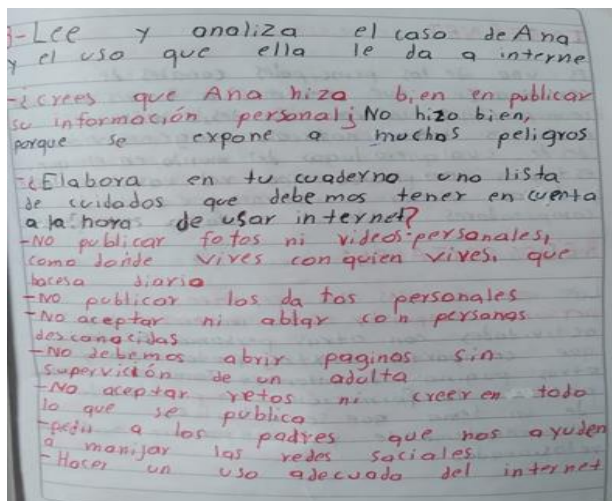 j-Lee y analiza el caso de Ana
y el uso que ella le da a interne
-¿crees que Ana hizo bien en publicar
su información personal¡ No hizo bien,
porque se expone a muchos peligros
-¿Elabora en tu cuaderno una lista
de cuidados que debemos tener en cuenta
a la hora de usar internet?
-No publicar fotos ni videos personales,
como donde vives con quien vives, que
hacesa diario
-No publicar los da tos personales
-No aceptar ni ablar con personas
desconocidas
-No debemos abrir paginas sin
supervición de un adulta
-No aceptar retos ni creer en todo
lo que se publica
-pedir a los padres que nos ayuden
a manijar las redes saciales
-Hacer un uso adecuada del internet